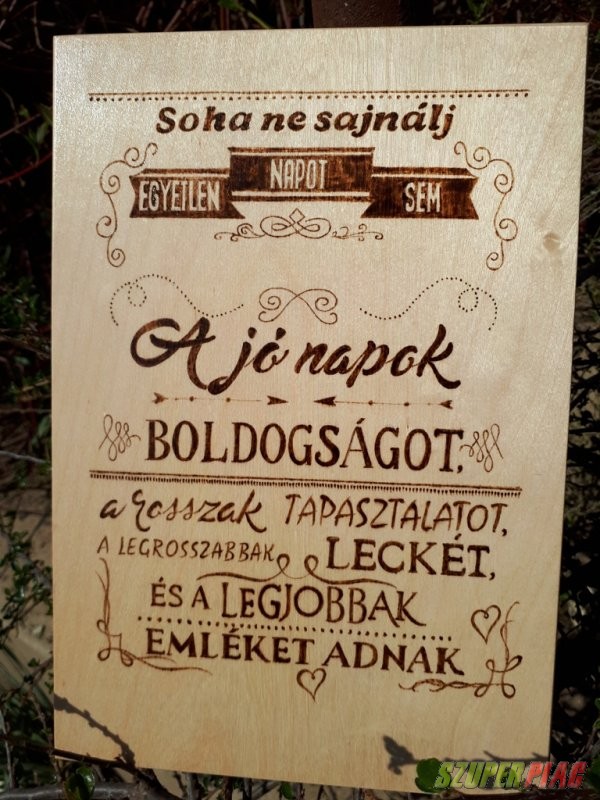 Soha ne sajnálj
EGYETLEN NAPOT SEM
A jó napok
BOLDOGSÁGOT,
a rosszak TAPASZTALATOT,
A LEGROSSZABBAK LECKÉT,
ÉS A LEGJOBBAK
EMLÉKET ADNAK
SZUPER PIAC